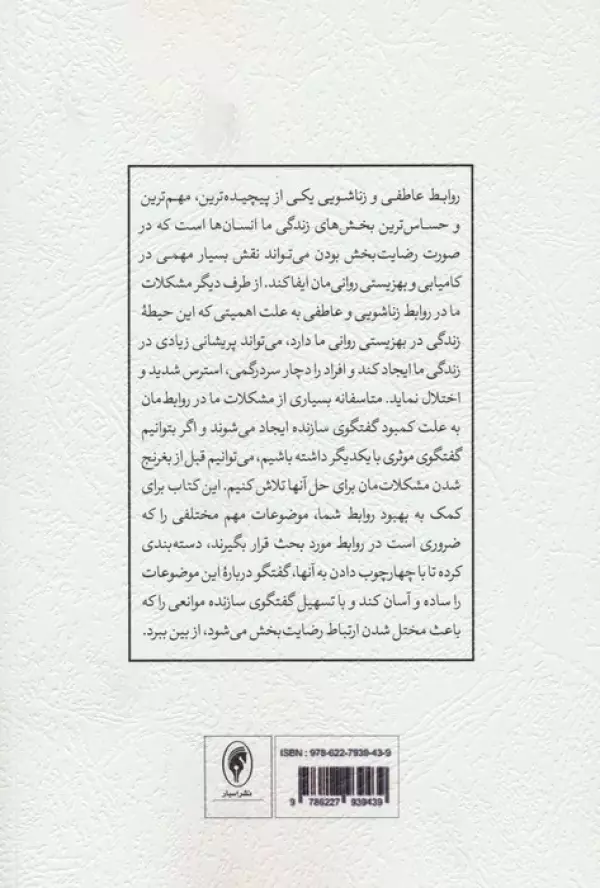 روابط عاطفی و زناشویی یکی از پیچیده‌ترین، مهم‌ترین
و حساس‌ترین بخش‌های زندگی ما انسان‌ها است که در
صورت رضایت‌بخش بودن می‌تواند نقش بسیار مهمی در
کامیابی و بهزیستی روانی‌مان ایفا کند. از طرف دیگر مشکلات
ما در روابط زناشویی و عاطفی به علت اهمیتی که این حیطهٔ
زندگی در بهزیستی روانی ما دارد، می‌تواند پریشانی زیادی در
زندگی ما ایجاد کند و افراد را دچار سردرگمی، استرس شدید و
اختلال نماید. متاسفانه بسیاری از مشکلات ما در روابط‌مان
به علت کمبود گفتگوی سازنده ایجاد می‌شوند و اگر بتوانیم
گفتگوی موثری با یکدیگر داشته باشیم، می‌توانیم قبل از بغرنج
شدن مشکلات‌مان برای حل آنها تلاش کنیم. این کتاب برای
کمک به بهبود روابط شما، موضوعات مهم مختلفی را که
ضروری است در روابط مورد بحث قرار بگیرند، دسته‌بندی
کرده تا با چهارچوب دادن به آنها، گفتگو دربارهٔ این موضوعات
را ساده و آسان کند و با تسهیل گفتگوی سازنده موانعی را که
باعث مختل شدن ارتباط رضایت‌بخش می‌شود، از بین ببرد.
نشر اسبار
ISBN : 978-622-7939-43-9
9 786227 939439